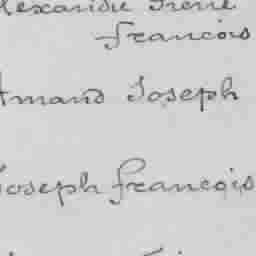 Alexandre Irené
francois
Amand Joseph
Joseph francois